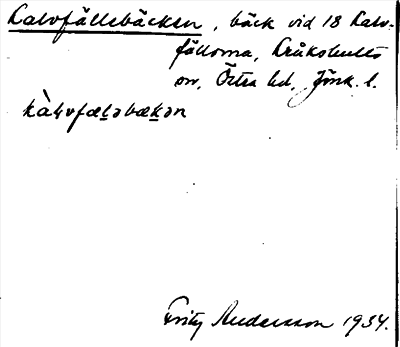 Kalvfällebäcken, bäck vid 18 Kalv-
fällorna, Kråkshults
sn, Östra hd, Jönk. l.
kàlvfæḷəbæḵən
Fritz Andersson 1934.